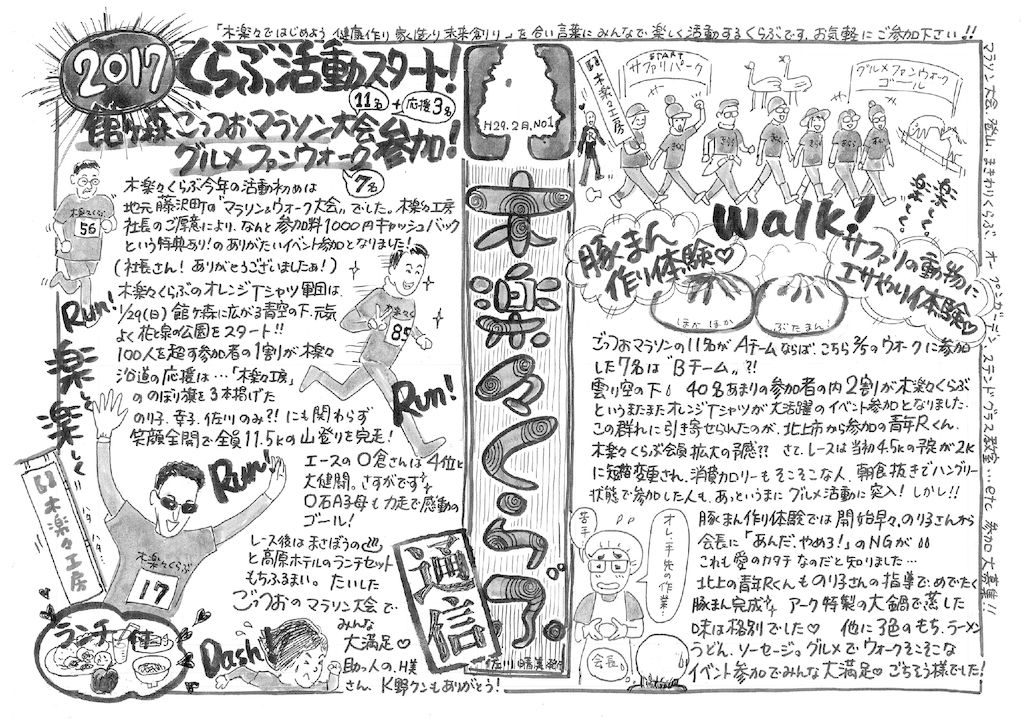 「木楽々ではじめよう 健康作り 家造り 未来創り」を合い言葉にみんなで楽しく活動するくらぶです。お気軽にご参加下さい!!
2017 くらぶ活動スタート!
11名 + 応援3名
館ヶ森ごっつおマラソン大会
グルメファンウォーク 参加!
7名
木楽々くらぶ今年の活動初めは
地元藤沢町の"マラソン&ウォーク大会"でした。木楽々工房
社長のご厚意により、なんと参加料1000円キャッシュバック
という特典あり!のありがたいイベント参加となりました!
(社長さん!ありがとうございましたぁ!)
木楽々くらぶのオレンジTシャツ軍団は、
1/29(日) 館ヶ森に広がる青空の下、元気
よく花と泉の公園をスタート!!
100人を超す参加者の1割が木楽々
沿道の応援は…「木楽々工房」
ののぼり旗を3本掲げた
のり子、幸子、佐川のみ?!にも関わらず
笑顔全開で全員11.5kの山登りを完走!
エースの〇倉さんは4位と
大健闘。さすがです
〇石A子母も力走で感動の
ゴール!
レース後はまさぼうの♨
と高原ホテルのランチセット
もちふるまい。たいした
ごっつおのマラソン大会で
みんな
大満足♡
助っ人の、H美
さん、K野クンもありがとう!
木楽々くらぶ
56
Run!
木楽々くらぶ
85
Run!
楽しく楽しく
木楽々工房
パタパタ
Run!
木楽々くらぶ
17
ランチ付
Dash!
H29.2月.NO1
木楽々くらぶ
通信
佐川 晴美 発行
木楽々工房
START
サファリパーク
グルメファンウォーク
ゴール
楽し〜
楽し〜
Walk!
豚まん
作り体験♡
サファリの動物に
エサやり体験♡
ほかほか
ぶたまん!
ごっつおマラソンの11名がAチームならば、こちら2/5のウォークに参加
した7名は"Bチーム"?!
曇り空の下。40名あまりの参加者の内2割が木楽々くらぶ
というまたまたオレンジTシャツが大活躍のイベント参加となりました。
この群れに引き寄せられたのが、北上市から参加の青年Rくん。
木楽々くらぶ会員拡大の予感?? さて、レースは当初4.5kの予定が2k
に短縮変更され、消費カロリーもそこそこな人、朝食抜きでハングリー
状態で参加した人も、あっというまにグルメ活動に突入!しかし!!
豚まん作り体験では開始早々、のり子さんから
会長に「あんだ、やめろ!」のNGが
これも愛のカタチなのだと知りました…
北上の青年Rくんものり子さんの指導で、めでたく
豚まん完成 アーク特製の大鍋で蒸した
味は格別でした♡ 他に3色のもち、ラーメン
うどん、ソーセージ。グルメでウォークそこそこな
イベント参加でみんな大満足♡ごちそう様でした!
苦手
オレ、手先の作業?
会長。
マラソン大会、登山、まきわりくらぶ、オープンガーデン、ステンドグラス教室…etc 参加者大募集!!